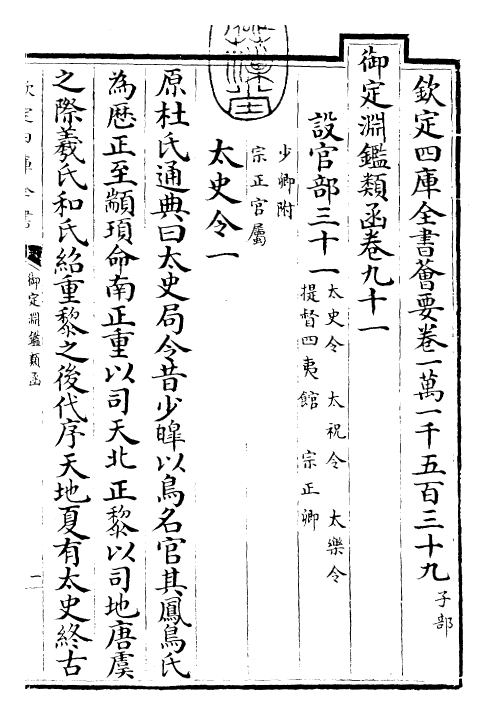 欽定四庫全書薈要卷一萬一千五百三十九 子部
御定淵鑑類函卷九十一
設官部三十一 太史令 太祝令 太樂令
提督四夷館 宗正卿
少卿附
宗正官屬
太史令一
原杜氏通典曰太史局令昔少皡以鳥名官其鳳鳥氏
為歴正至顓頊命南正重以司天北正黎以司地唐虞
之際羲氏和氏紹重黎之後代序天地夏有太史終古
欽定四庫全書
御定淵鑑類函